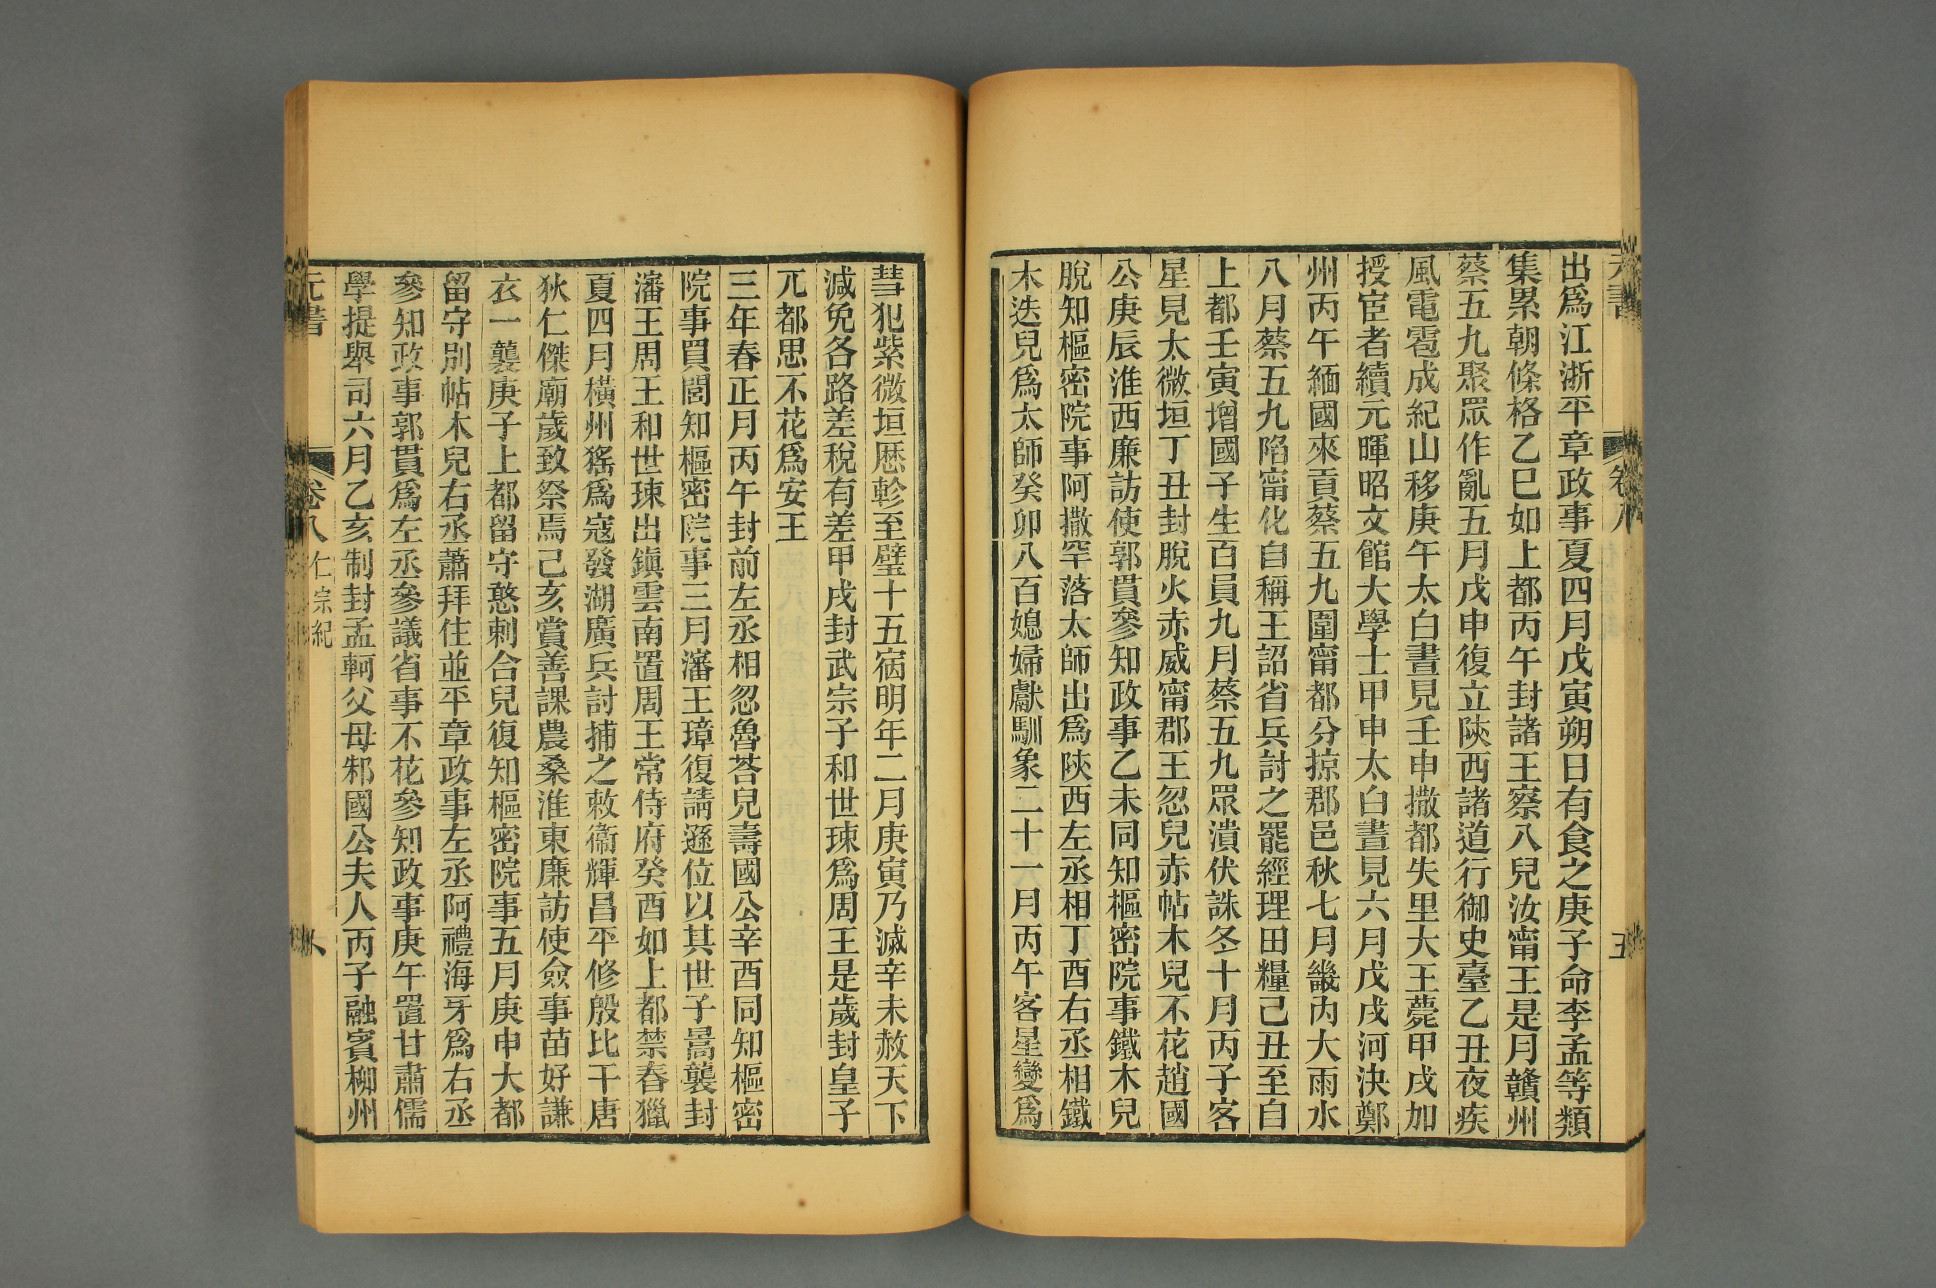 出爲江浙平章政事夏四月戊寅朔日有食之庚子命李孟等類
集累朝條格乙巳如上都丙午封諸王察八兒汝甯王是月贛州
蔡五九聚眾作亂五月戊申復立陝西諸道行御史臺乙丑夜疾
風電雹成紀山移庚午太白晝見壬申撒都失里大王薨甲戌加
授宦者續元暉昭文館大學士甲申太白晝見六月戊戌河決鄭
州丙午緬國來貢蔡五九圍甯都分掠郡邑秋七月畿內大雨水
八月蔡五九陷甯化自稱王詔省兵討之罷經理田糧己丑至自
上都壬寅增國子生百員九月蔡五九眾潰伏誅冬十月丙子客
星見太微垣丁丑封脫火赤威甯郡王忽兒赤帖木兒不花趙國
公庚辰淮西廉訪使郭貫參知政事乙未同知樞密院事鐵木兒
脫知樞密院事阿撒罕落太師出爲陝西左丞相丁酉右丞相鐵
木迭兒爲太師癸卯八百媳婦獻馴象二十一月丙午客星變爲
彗犯紫微垣歷軫至壁十五宿明年二月庚寅乃滅辛未赦天下
減免各路差稅有差甲戌封武宗子和世㻋爲周王是歲封皇子
兀都思不花爲安王
三年春正月丙午封前左丞相忽魯荅兒壽國公辛酉同知樞密
院事買閭知樞密院事三月瀋王璋復請遜位以其世子暠襲封
瀋王周王和世㻋出鎮雲南置周王常侍府癸酉如上都禁春獵
夏四月橫州猺爲寇發湖廣兵討捕之敕衞輝昌平修殷比干唐
狄仁傑廟歲致祭焉己亥賞善課農桑淮東廉訪使僉事苗好謙
衣一襲庚子上都留守憨剌合兒復知樞密院事五月庚申大都
留守別帖木兒右丞蕭拜住並平章政事左丞阿禮海牙爲右丞
參知政事郭貫爲左丞參議省事不花參知政事庚午置甘肅儒
學提舉司六月乙亥制封孟軻父母邾國公夫人丙子融賓柳州
元書
卷八
仁宗紀